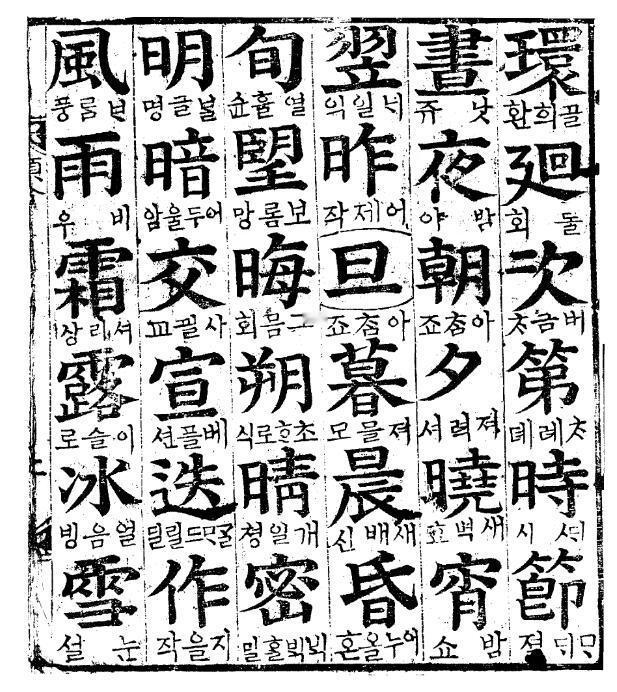 環 골희환 廻 돌회 次 버금ᄎᆞ 第 ᄎᆞ례뎨 時 시 節 졀
晝 낫쥬 夜 밤야 朝 아ᄎᆞᆷ죠 夕 曉 새벽효 宵 밤쇼
翌 일익 昨 어제작 旦 아ᄎᆞᆷ죠 暮 져믈모 晨 새배신 昏 어누올혼
旬 열흘슌 望 보롬망 晦 그몸회 朔 초 晴 개일쳥 密 빅빅홀밀
明 글명 暗 어두울암 交 사괼교 宣 베플션 迭 릴딜 作 지을작
風 룸풍 雨 비우 霜 셔리상 露 이슬로 冰 얼음빙 雪 눈셜